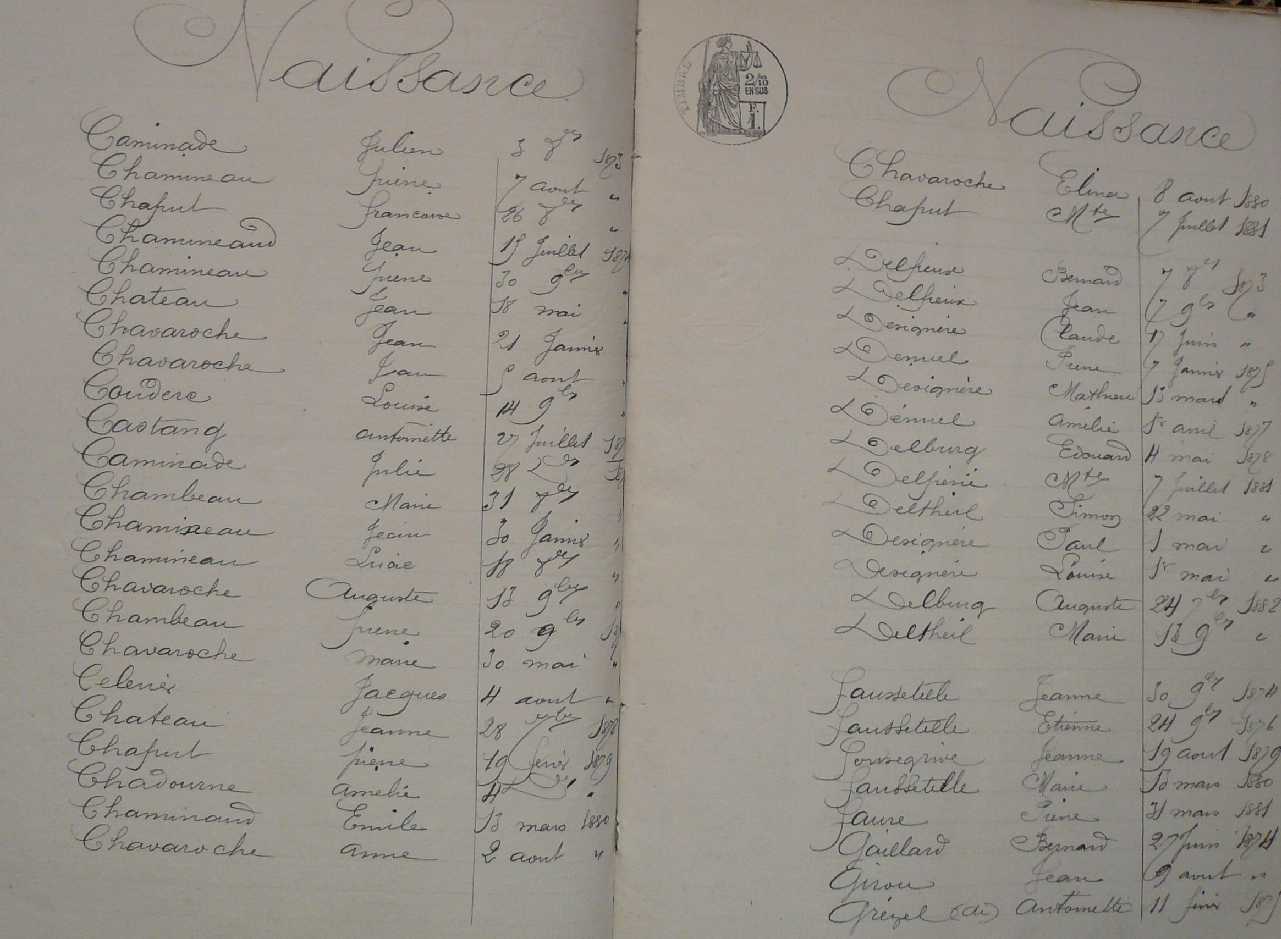 Naissance
Caminade Julien 3 8bre 1873
Chamineau Pierre 7 aout "
Chaput francoise 26 8bre "
Chamineaud Jean 15 Juillet
Chamineau Pierre 30 9bre "
Chateau Jean 18 mai "
Chavaroche Jean 21 Janvier
Chavaroche Jean 5 aout "
Couderc Louise 14 9bre "
Castang antoinette 27 Juillet
Caminade Julie 28
Chambeau Marie 31 8bre
Chamineau Jean 30 Janvier "
Chamineau 18 8bre "
Chavaroche Auguste 13 9bre "
Chambeau pierre 20 9bre
Chavaroche marie 30 mai "
Jacques 4 aout "
Chateau Jeanne 28 7bre 1878
Chaput pierre 19 février 1879
Chadourne Amelie 4 "
Chaminaud Emile 13 mars 1880
Chavaroche anne 2 aout "
TIMBRE
2/10
EN SUS
F.
1.
Naissance
Chavaroche 8 aout 1880
Chaput Mte 7 Juillet 1881
Delpeux Bernard 7 8bre 1873
Delpeux Jean 7 9bre "
Désignère Claude 17 Juin "
Deniel Pierre 7 Janvier 1875
Désignère Mathieu 13 mars "
Déniel Amélie 1er avril 1877
Delburg Edouard 4 mai 1878
Mte 7 Juillet 1881
Deltheil Simon 22 mai "
Désignère Paul 1 mai "
Désignère Louise 1er mai "
Delburg Auguste 24 7bre 1882
Deltheil Marie 13 9bre "
Faussetille Jeanne 30 9bre 1874
Faussetille Etienne 24 9bre 1876
Fonsegrive Jeanne 19 aout 1879
Faussetille Marie 13 mars 1880
Faure Pierre 31 mars 1881
Gaillard Bernard 27 Juin 1874
Girou Jean 9 aout "
Grézel (de) Antoinette 11 févr 1875